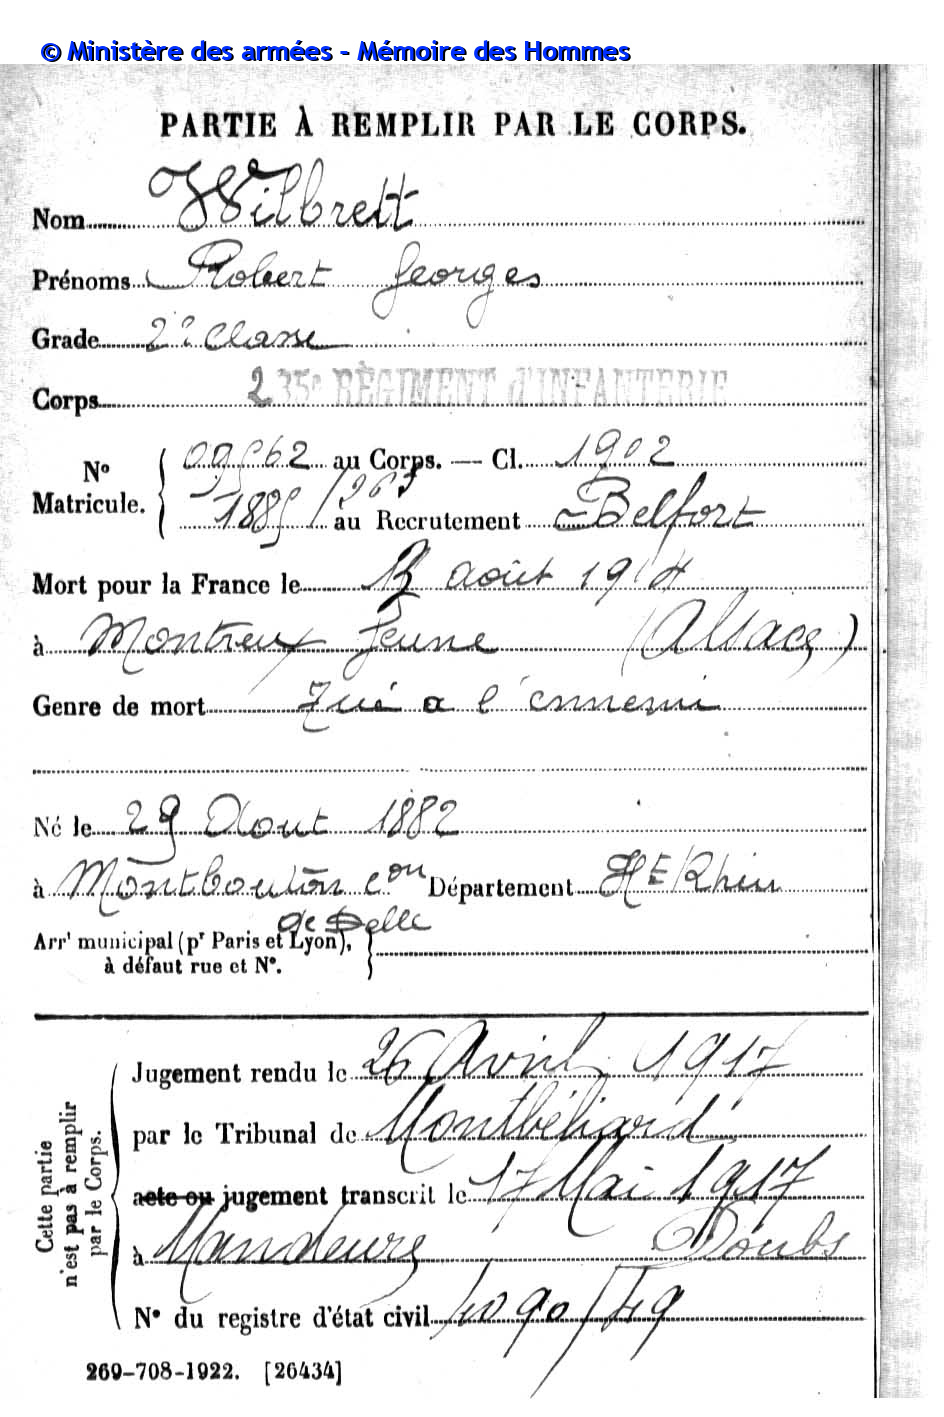 © Ministère des armées - Mémoire des Hommes
PARTIE À REMPLIR PAR LE CORPS.
Nom Wilbrett
Prénoms Robert Georges
Grade 2e Classe
Corps 235e RÉGIMENT d'INFANTERIE
N° Matricule. { 09562 au Corps. — Cl. 1902
1885/263 au Recrutement Belfort
Mort pour la France le 13 août 1914
à Montreux Jeune (Alsace)
Genre de mort Tué a l'ennemi
Né le 29 Aout 1882
à Montbouton con Département Ht Rhin
de Delle
Arrt municipal (pr Paris et Lyon),
à défaut rue et N°.
Cette partie
n'est pas à remplir
par le Corps.
Jugement rendu le 26 Avril 1917
par le Tribunal de Montbéliard
acte ou jugement transcrit le 17 Mai 1917
à Mandeure Doubs
N° du registre d'état civil
269-708-1922. [26434]